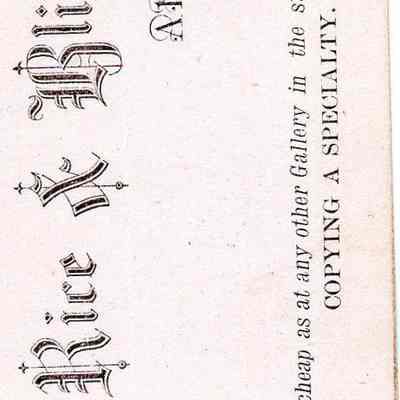 Rice & Bli
AR
cheap as at any other Gallery in the s
COPYING A SPECIALTY.